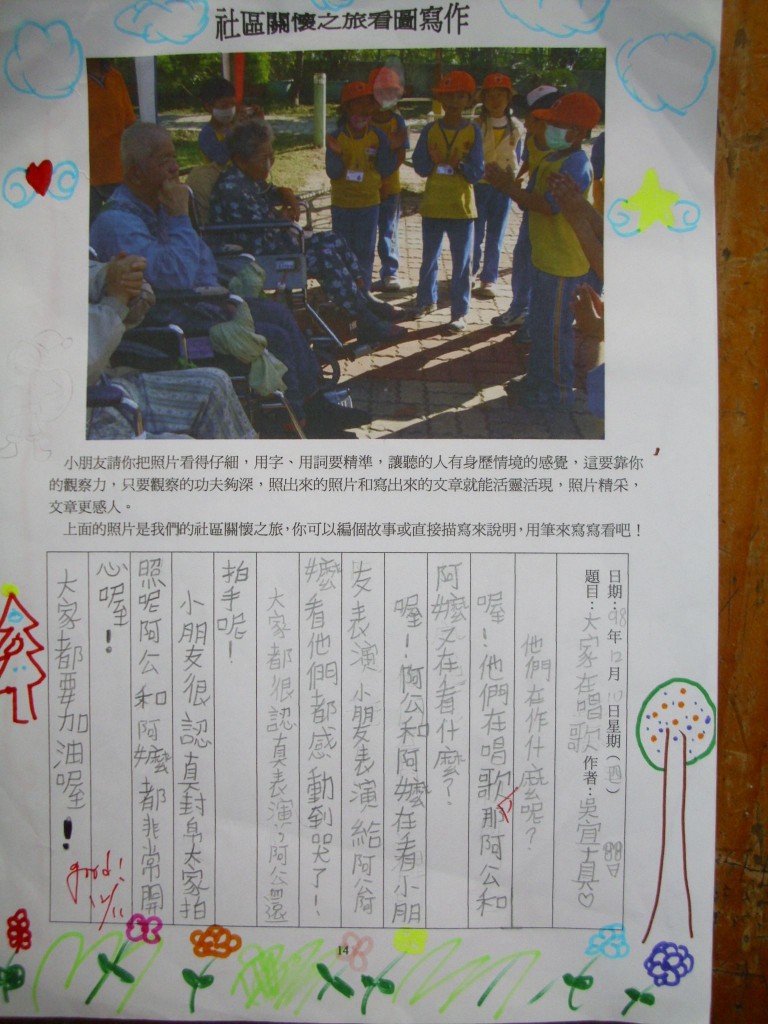 社區關懷之旅看圖寫作
小朋友請你把照片看得仔細，用字、用詞要精準，讓聽的人有身歷情境的感覺，這要靠你
的觀察力，只要觀察的功夫夠深，照出來的照片和寫出來的文章就能活靈活現，照片精采，
文章更感人。
上面的照片是我們的社區關懷之旅，你可以編個故事或直接描寫來說明，用筆來寫寫看吧！
日期：98年12月10日星期（四）
題目：大家在唱歌 作者：吳宜真♡
他們在作什麼呢？
喔！他們在唱歌那阿公和
阿嬤又在看什麼？
喔！阿公和阿嬤在看小朋
友表演 小朋友表演給阿公
嬤看他們都感動到哭了！
大家都很認真表演，阿公還
拍手呢！
小朋友很認真封帛大家拍
照呢阿公和阿嬤都非常開
心喔！
大家都要加油喔！
good!
14